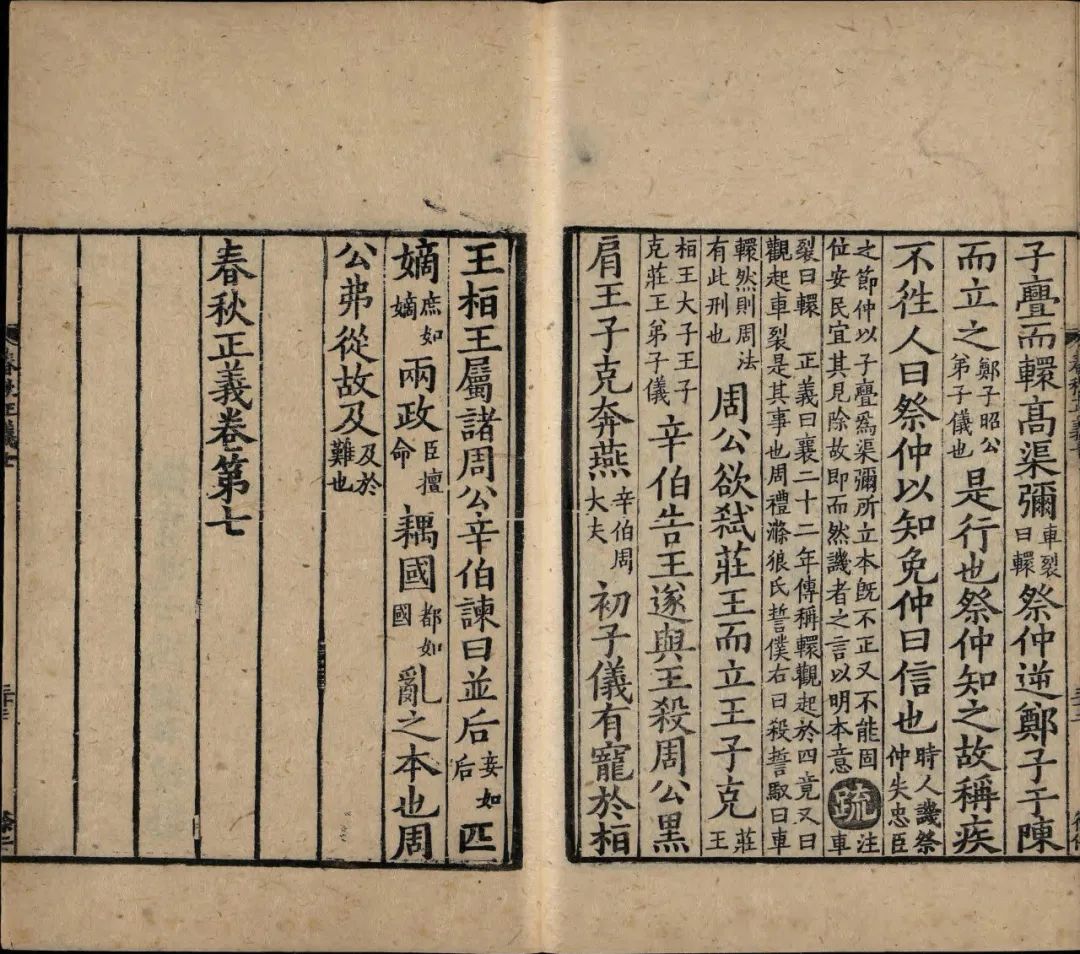 子亹而轘高渠彌車裂曰轘祭仲逆鄭子于陳
而立之鄭子昭公弟子儀也是行也祭仲知之故稱疾
不徃人曰祭仲以知免仲曰信也時人譏祭仲失忠臣
之節仲以子亹爲渠彌所立本旣不正又不能固位安民宜其見除故即而然譏者之言以明本意疏注車
裂曰轘 正義曰襄二十二年傳稱轘觀起於四竟又曰觀起車裂是其事也周禮滌狼氏誓僕右曰殺誓馭曰車
轘然則周法有此刑也周公欲弒莊王而立王子克莊王
桓王大子王子克莊王弟子儀辛伯告王遂與王殺周公黑
肩王子克奔燕辛伯周大夫初子儀有寵於桓
王桓王屬諸周公辛伯諫曰並后妾如后匹
嫡庶如嫡兩政臣擅命耦國都如國亂之本也周
公弗從故及及於難也
春秋正義卷第七